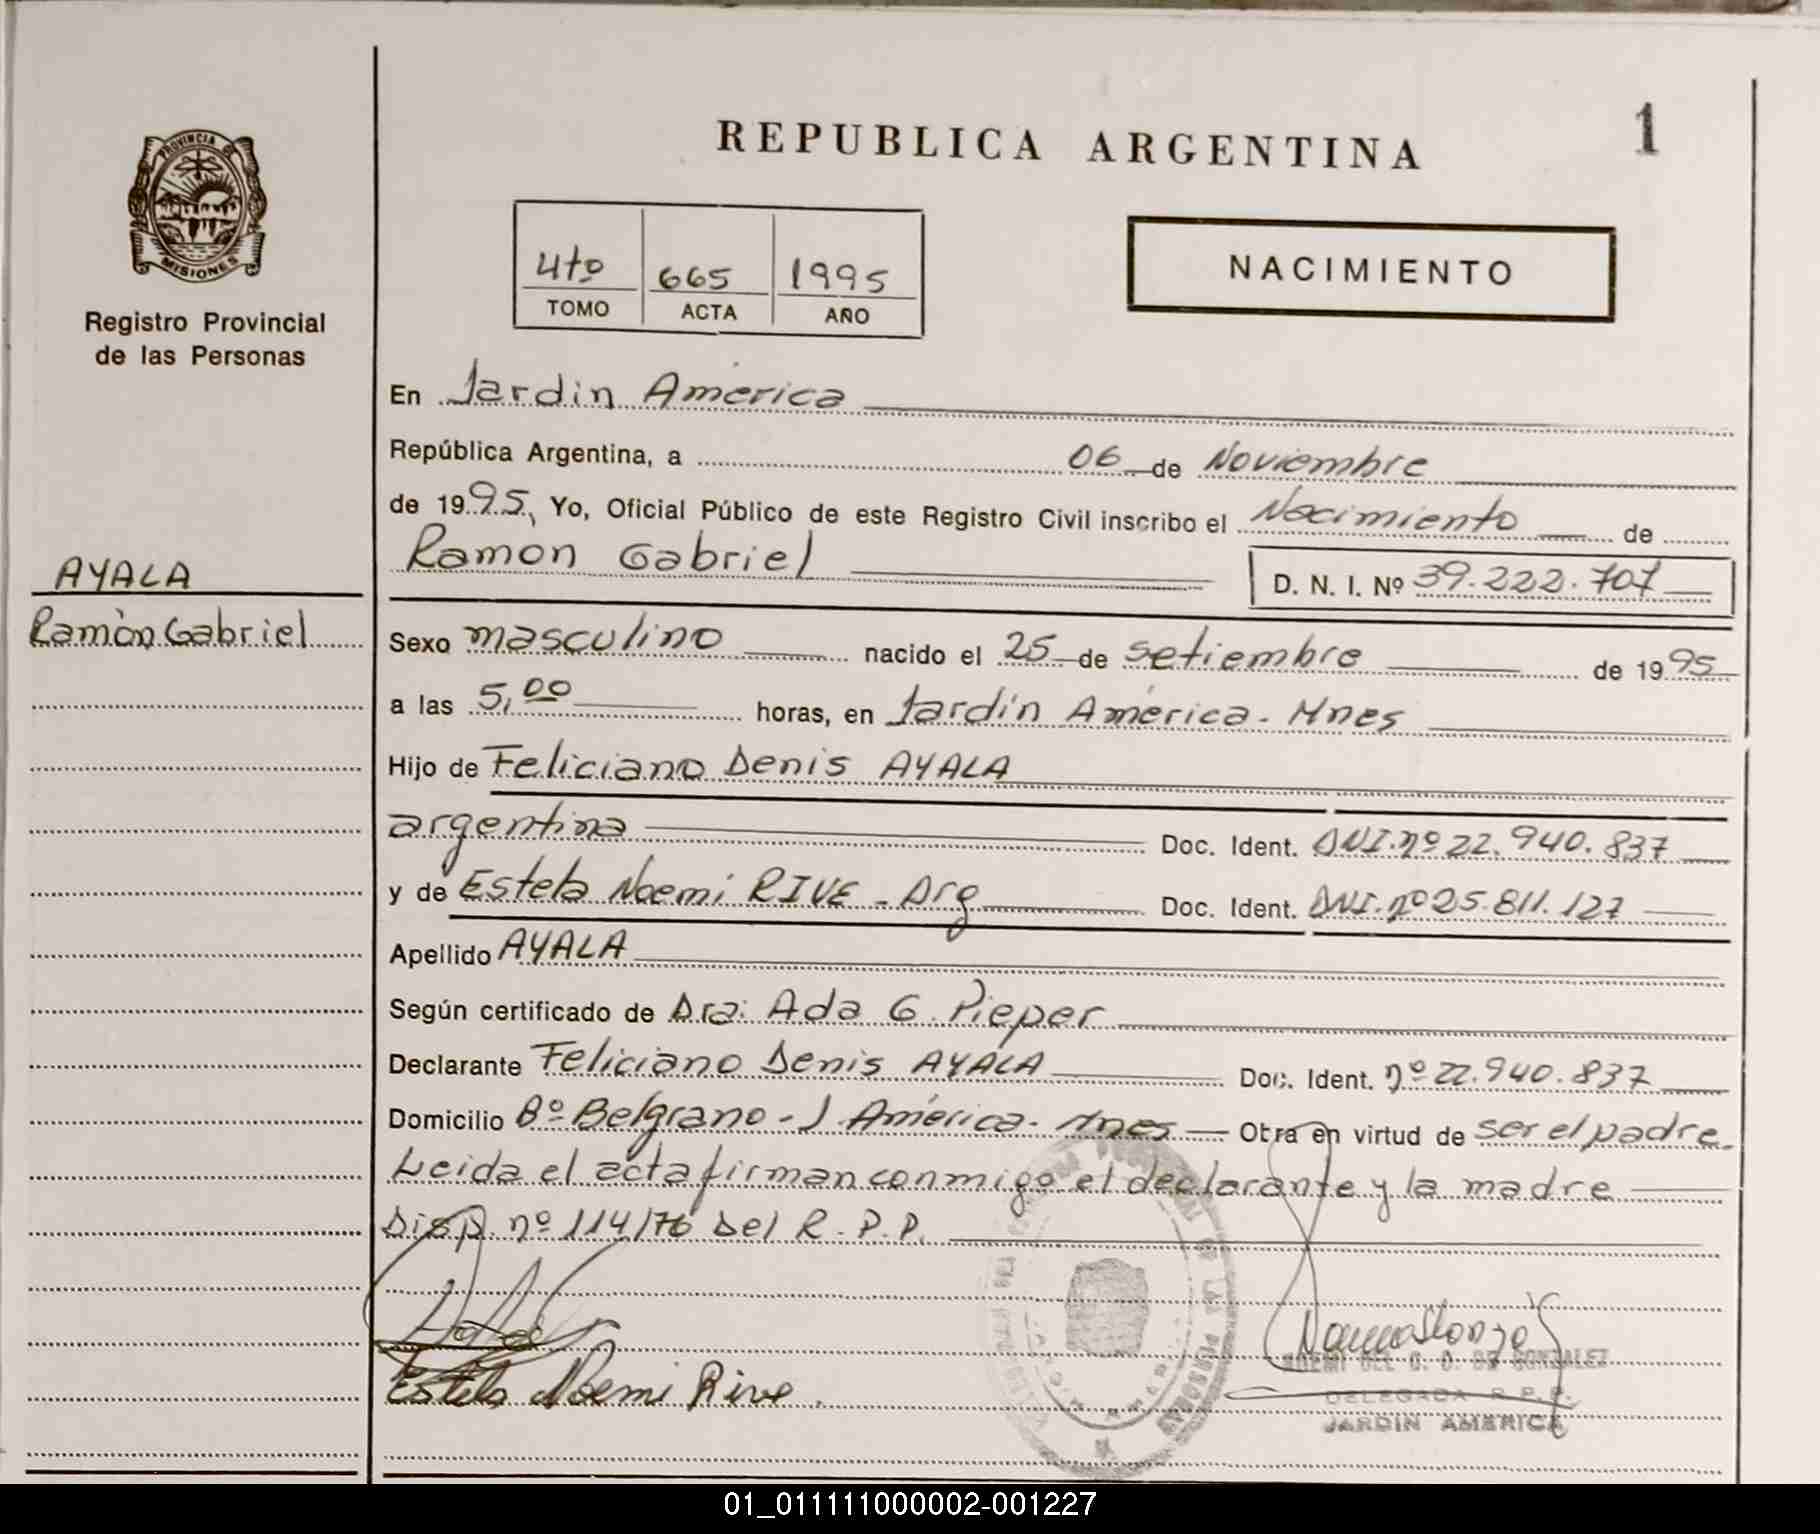 REPUBLICA ARGENTINA
1
PROVINCIA DE
MISIONES
Registro Provincial
de las Personas
4to 665 1995
TOMO ACTA AÑO
NACIMIENTO
En Jardin America
República Argentina, a 06 de Noviembre
de 1995, Yo, Oficial Público de este Registro Civil inscribo el Nacimiento de
Ramon Gabriel D. N. I. Nº 39.222.707
AYALA
Ramòn Gabriel
Sexo masculino nacido el 25 de setiembre de 1995
a las 5,00 horas, en Jardin América - Mnes
Hijo de Feliciano Denis AYALA
argentina Doc. Ident. DNI.nº 22.940.837
y de Estela Noemi RIVE - Arg Doc. Ident. DNI.nº 25.811.127
Apellido AYALA
Según certificado de Dra: Ada G. Pieper
Declarante Feliciano Denis AYALA Doc. Ident. nº 22.940.837
Domicilio Bº Belgrano - J. América - Mnes — Obra en virtud de ser el padre.
Leida el acta firman conmigo el declarante y la madre
Disp. nº 114/76 Del R.P.P.
Estela Noemi Rive.
NOEMI DEL C. O. DE GONZALEZ
DELEGADA R.P.P.
JARDIN AMERICA
01_011111000002-001227